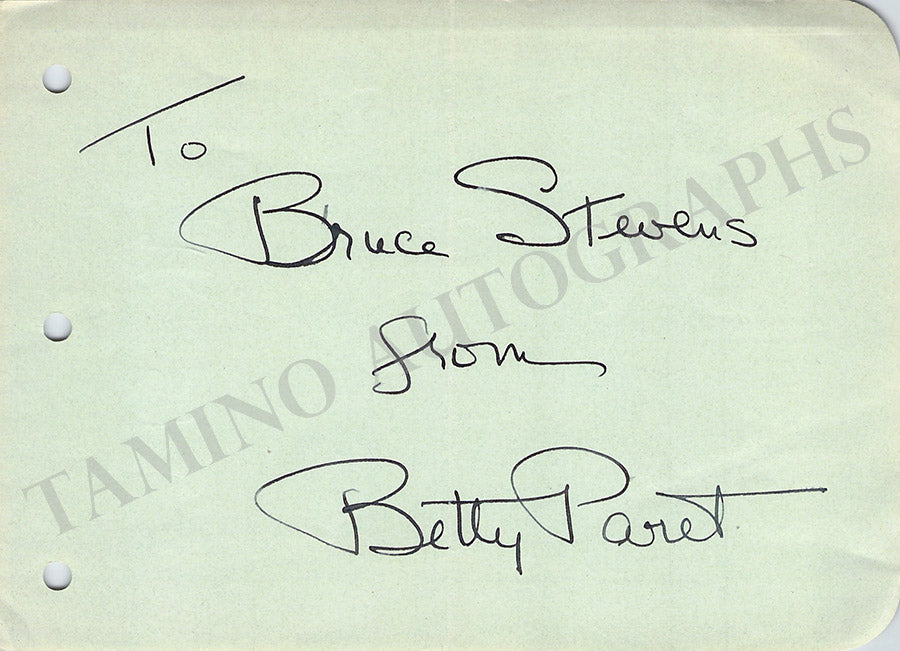 To
Bruce Stevens
from
Betty Paret
TAMINO AUTOGRAPHS